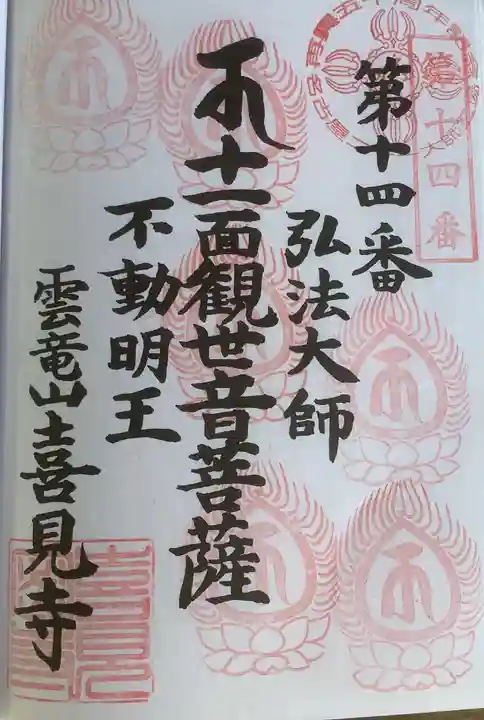 第十四番
弘法大師
十一面観世音菩薩
不動明王
雲竜山喜見寺
第十四番
大師
喜見寺